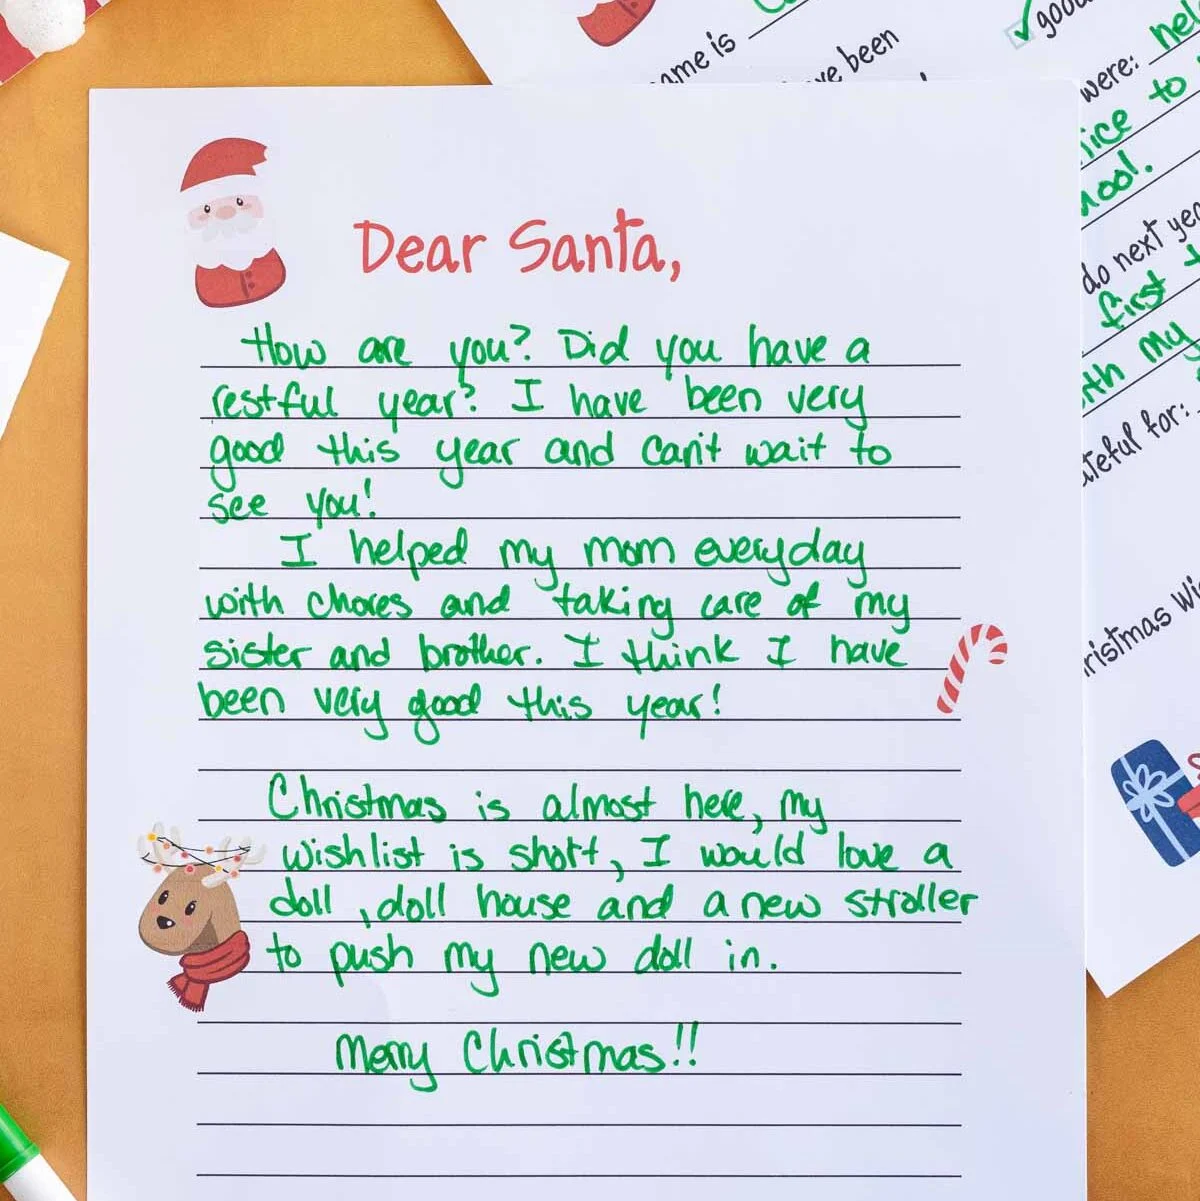 Dear Santa,
How are you? Did you have a
restful year? I have been very
good this year and can't wait to
see you!
I helped my mom everyday
with chores and taking care of my
sister and brother. I think I have
been very good this year!
Christmas is almost here, my
wishlist is short, I would love a
doll, doll house and a new stroller
to push my new doll in.
Merry Christmas!!
me is
ve been
good
were:
ice to
hool.
do next yea
first
th my
ateful for:
ristmas Wi